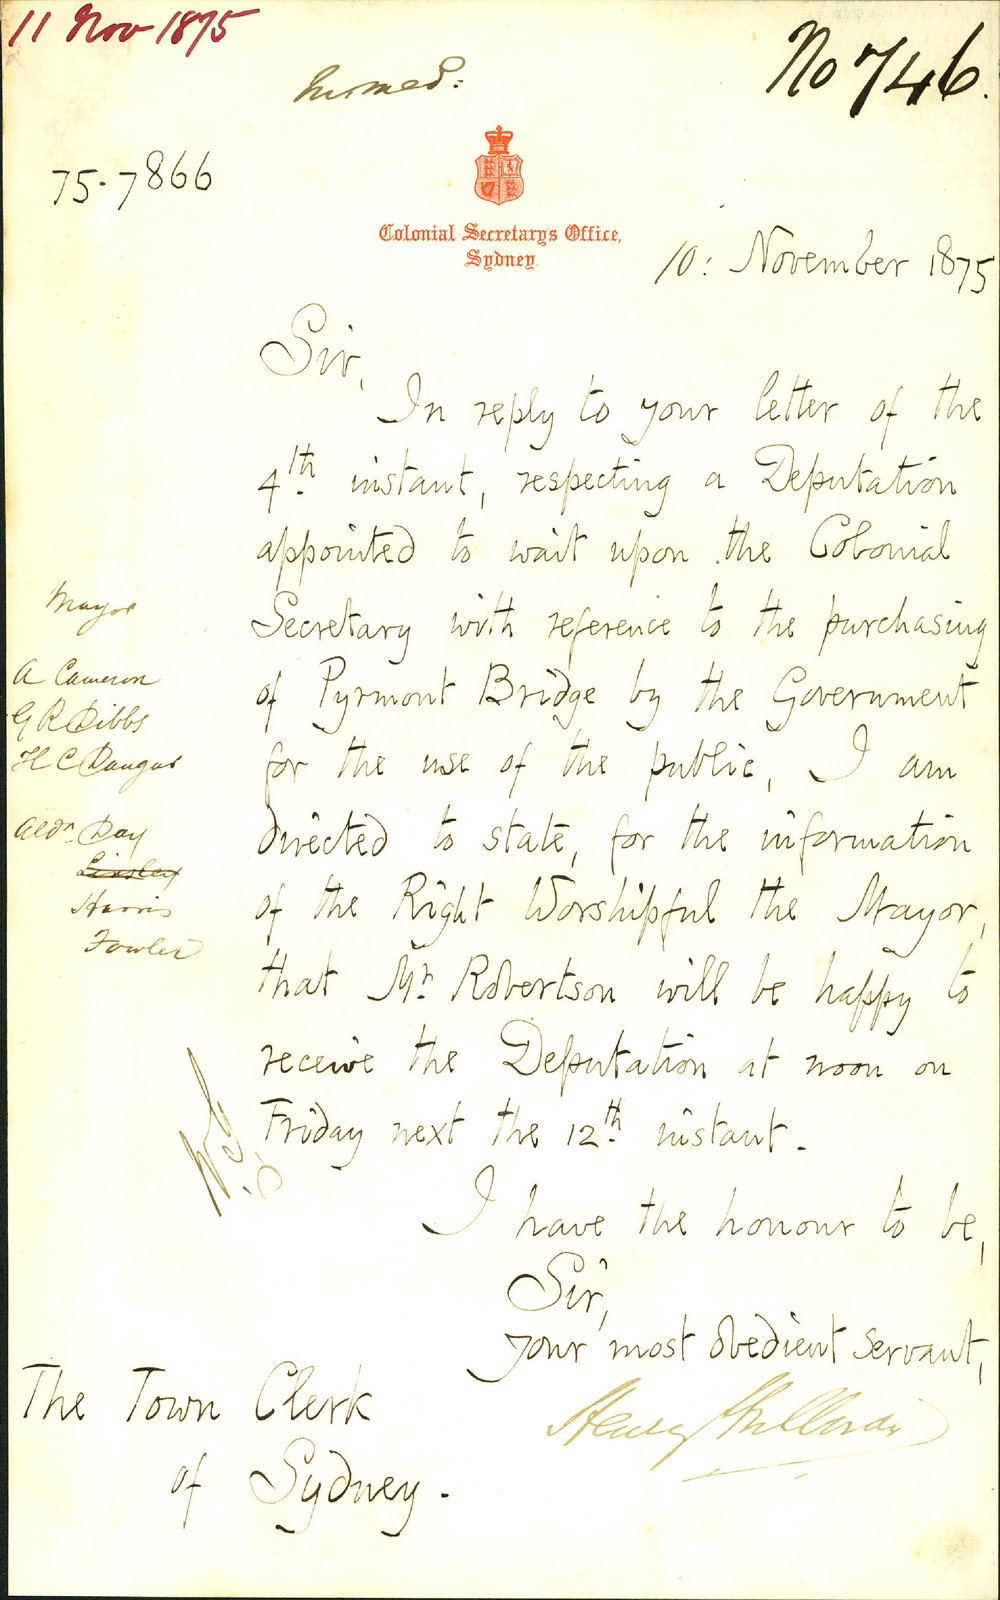 11 Nov 1875
No 746.
75.7866
Colonial Secretarys Office,
Sydney
10: November 1875
Sir,
In reply to your letter of the
4th. instant, respecting a Deputation
appointed to wait upon the Colonial
Secretary with reference to the purchasing
of Pyrmont Bridge by the Government
for the use of the public, I am
directed to state, for the information
of the Right Worshipful the Mayor,
that Mr. Robertson will be happy to
receive the Deputation at noon on
Friday next the 12th. instant.
I have the honour to be,
Sir,
Your most obedient servant,
Henry Halloran
The Town Clerk
of Sydney.
Mayor
A Cameron
G R Dibbs
H C Dangar
Aldn. Day
Linsley
Harris
Fowler